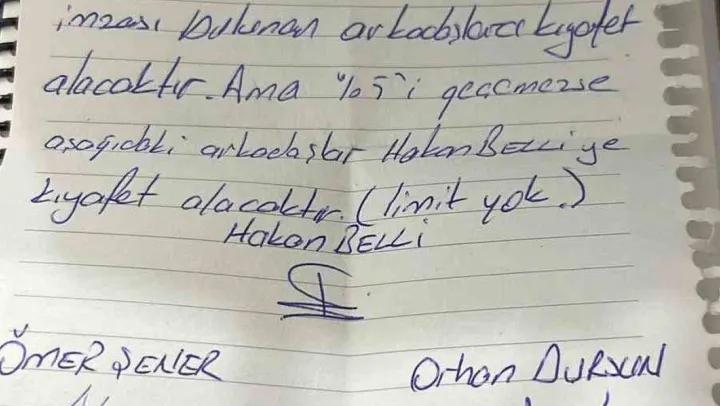 imzası bulunan arkadaşlara kıyafet
alacaktır. Ama %5'i geçmezse
aşağıdaki arkadaşlar Hakan BELLİ'ye
kıyafet alacaktır. (limit yok.)
Hakan BELLİ
ÖMER ŞENER
Orhan DURSUN